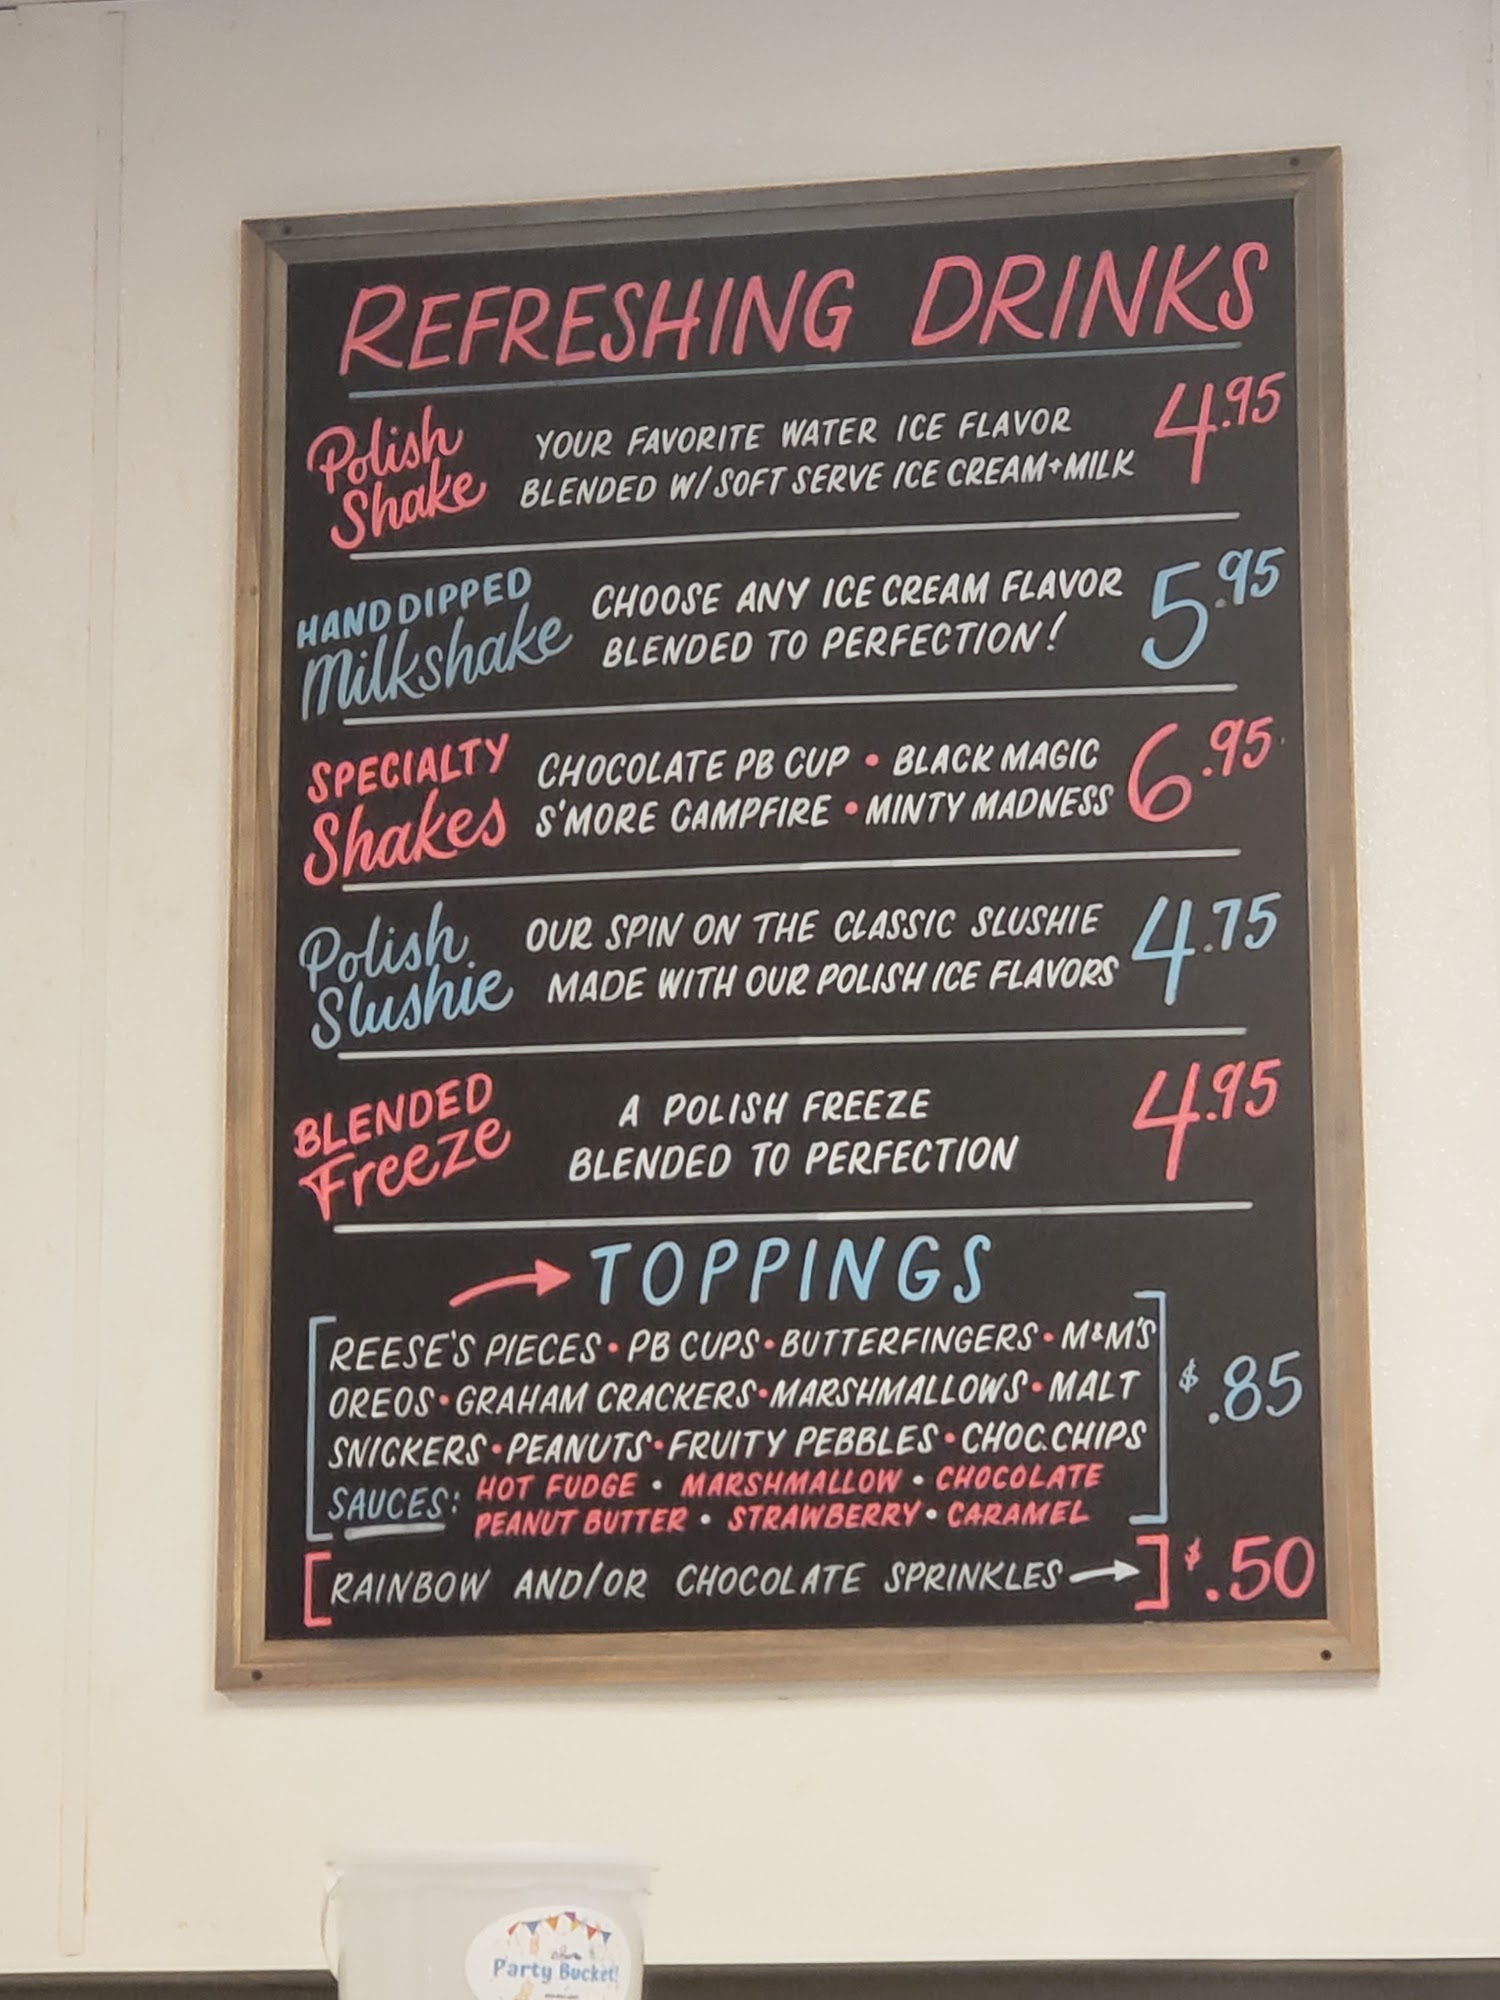 REFRESHING DRINKS
Polish Shake
YOUR FAVORITE WATER ICE FLAVOR
BLENDED W/ SOFT SERVE ICE CREAM+MILK
4.95
HAND DIPPED
Milkshake
CHOOSE ANY ICE CREAM FLAVOR
BLENDED TO PERFECTION!
5.95
SPECIALTY
Shakes
CHOCOLATE PB CUP • BLACK MAGIC
S'MORE CAMPFIRE • MINTY MADNESS
6.95
Polish
Slushie
OUR SPIN ON THE CLASSIC SLUSHIE
MADE WITH OUR POLISH ICE FLAVORS
4.75
BLENDED
Freeze
A POLISH FREEZE
BLENDED TO PERFECTION
4.95
TOPPINGS
REESE'S PIECES • PB CUPS • BUTTERFINGERS • M&M'S
OREOS • GRAHAM CRACKERS • MARSHMALLOWS • MALT
SNICKERS • PEANUTS • FRUITY PEBBLES • CHOC. CHIPS
SAUCES: HOT FUDGE • MARSHMALLOW • CHOCOLATE
PEANUT BUTTER • STRAWBERRY • CARAMEL
$.85
RAINBOW AND/OR CHOCOLATE SPRINKLES
$.50
Party Bucket!